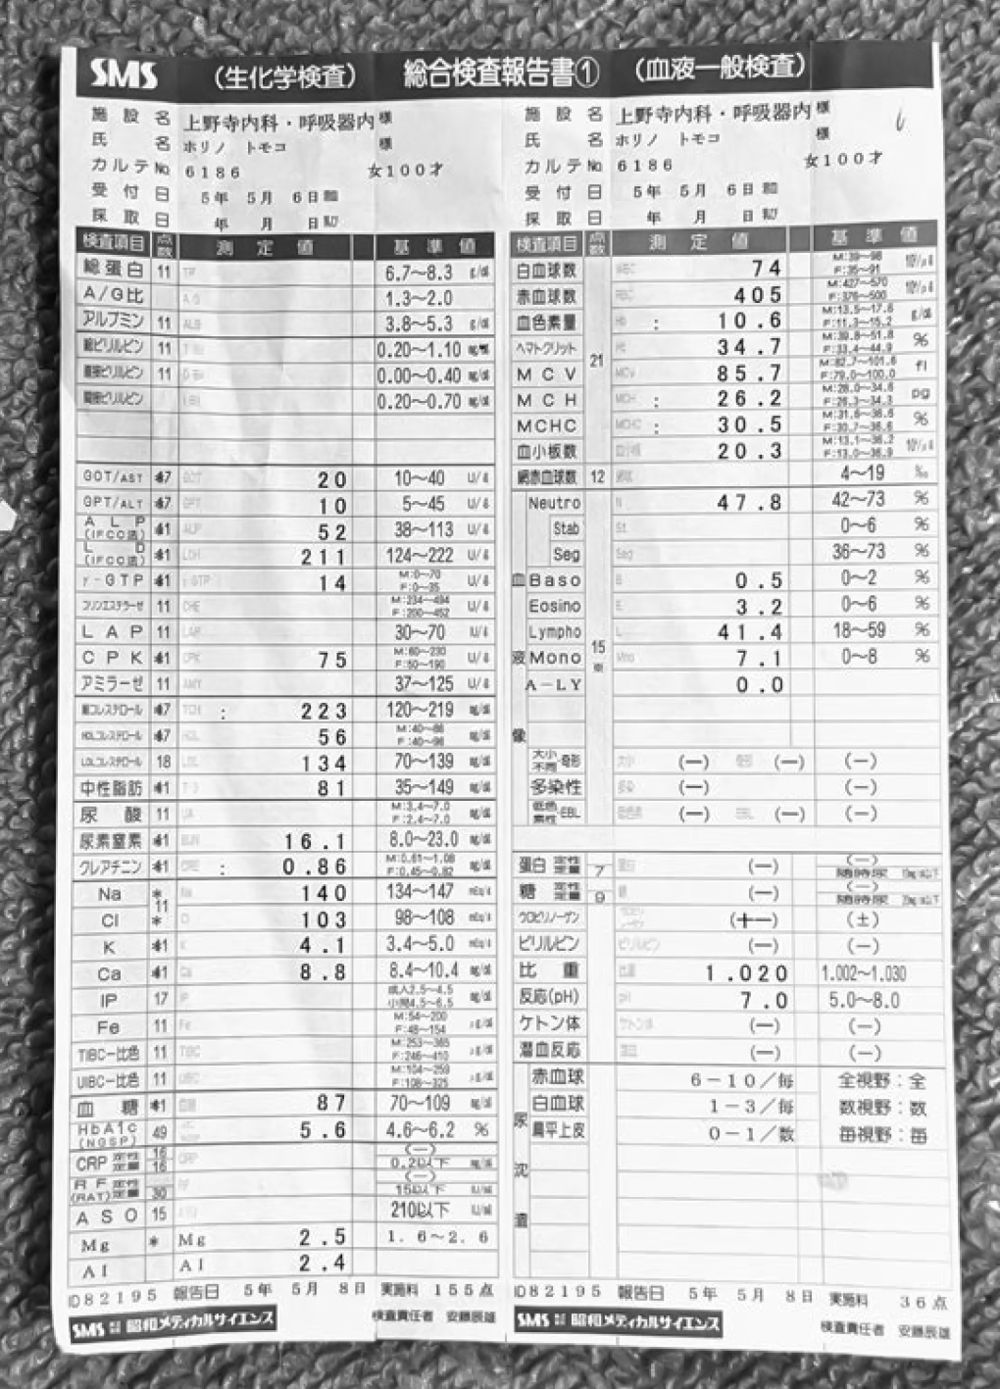 SMS (生化学検査) 総合検査報告書① (血液一般検査)
施設名 上野寺内科・呼吸器内 様
氏名 ホリノ トモコ 様
カルテNo. 6186 女100才
受付日 5年 5月 6日
採取日 年 月 日
検査項目 点数 測定値 基準値
総蛋白 11 TP 6.7〜8.3 g/dl
A/G比 A/G 1.3〜2.0
アルブミン 11 ALB 3.8〜5.3 g/dl
総ビリルビン 11 0.20〜1.10 mg/dl
直接ビリルビン 11 0.00〜0.40 mg/dl
間接ビリルビン 0.20〜0.70 mg/dl
GOT/AST *17 GOT 20 10〜40 U/ℓ
GPT/ALT *17 GPT 10 5〜45 U/ℓ
ALP (IFCC法) *11 ALP 52 38〜113 U/ℓ
L D (IFCC法) *11 LDH 211 124〜222 U/ℓ
γ-GTP *11 γ-GTP 14 M:0〜70 F:0〜35 U/ℓ
コリンエステラーゼ 11 CHE M:234〜494 F:200〜452 U/ℓ
LAP 11 LAP 30〜70 U/ℓ
CPK *11 CPK 75 M:60〜230 F:50〜190 U/ℓ
アミラーゼ 11 AMY 37〜125 U/ℓ
総コレステロール *17 TCH : 223 120〜219 mg/dl
HDLコレステロール *17 HDL 56 M:40〜86 F:40〜96 mg/dl
LDLコレステロール 18 LDL 134 70〜139 mg/dl
中性脂肪 *11 T-G 81 35〜149 mg/dl
尿酸 11 UA M:3.4〜7.0 F:2.4〜7.0 mg/dl
尿素窒素 *11 BUN 16.1 8.0〜23.0 mg/dl
クレアチニン *11 CRE : 0.86 M:0.61〜1.08 F:0.45〜0.82 mg/dl
Na * 11 Na 140 134〜147 mEq/ℓ
Cl * Cl 103 98〜108 mEq/ℓ
K *11 K 4.1 3.4〜5.0 mEq/ℓ
Ca *11 Ca 8.8 8.4〜10.4 mg/dl
IP 17 IP 成人2.5〜4.5 小児4.5〜6.5 mg/dl
Fe 11 Fe M:54〜200 F:48〜154 μg/dl
TIBC-比色 11 TIBC M:253〜365 F:246〜410 μg/dl
UIBC-比色 11 UIBC M:104〜259 F:108〜325 μg/dl
血糖 *11 血糖 87 70〜109 mg/dl
HbA1c (NGSP) 49 5.6 4.6〜6.2 %
CRP 定性 定量 16 16 CRP (−) 0.2以下 mg/dl
RF 定性 (RAT) 定量 30 RF (−) 15以下 IU/ml
ASO 15 ASO 210以下 IU/ml
Mg * Mg 2.5 1.6〜2.6
Al Al 2.4
ID82195 報告日 5年 5月 8日 実施料 155点
SMS 昭和メディカルサイエンス 検査責任者 安藤辰雄
施設名 上野寺内科・呼吸器内 様
氏名 ホリノ トモコ 様
カルテNo. 6186 女100才
受付日 5年 5月 6日
採取日 年 月 日
検査項目 点数 測定値 基準値
白血球数 WBC 74 M:39〜98 F:35〜91 10²/μℓ
赤血球数 RBC 405 M:427〜570 F:376〜500 10⁴/μℓ
血色素量 Hb : 10.6 M:13.5〜17.6 F:11.3〜15.2 g/dl
ヘマトクリット Ht 34.7 M:39.8〜51.8 F:33.4〜44.9 %
MCV 21 MCV 85.7 M:82.7〜101.6 F:79.0〜100.0 fl
MCH MCH : 26.2 M:28.0〜34.6 F:26.3〜34.3 pg
MCHC MCHC : 30.5 M:31.6〜36.6 F:30.7〜36.6 %
血小板数 血小板 20.3 M:13.1〜36.2 F:13.0〜36.9 10⁴/μℓ
網赤血球数 12 網赤 4〜19 ‰
血液像 15
Neutro N 47.8 42〜73 %
Stab St 0〜6 %
Seg Seg 36〜73 %
Baso B 0.5 0〜2 %
Eosino E 3.2 0〜6 %
Lympho L 41.4 18〜59 %
Mono Mno 7.1 0〜8 %
A-LY 0.0
大小不同・奇形 大小 (−) 奇形 (−) (−)
多染性 多染 (−) (−)
低色素性・EBL 低色素 (−) EBL (−) (−)
蛋白 定性 定量 7 蛋白 (−) (−) 随時尿 10mg/dl以下
糖 定性 定量 9 糖 (−) (−) 随時尿 20mg/dl以下
ウロビリノーゲン ウロビリノーゲン (+−) (±)
ビリルビン ビリルビン (−) (−)
比重 比重 1.020 1.002〜1.030
反応(pH) pH 7.0 5.0〜8.0
ケトン体 ケトン体 (−) (−)
潜血反応 潜血 (−) (−)
尿沈渣
赤血球 6-10/毎 全視野:全
白血球 1-3/毎 数視野:数
扁平上皮 0-1/数 毎視野:毎
ID82195 報告日 5年 5月 8日 実施料 36点
SMS 昭和メディカルサイエンス 検査責任者 安藤辰雄